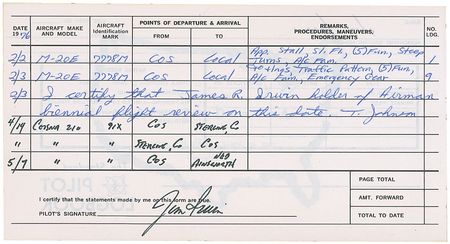 DATE 1976 AIRCRAFT MAKE AND MODEL AIRCRAFT Identification MARK POINTS OF DEPARTURE & ARRIVAL FROM TO REMARKS, PROCEDURES, MANEUVERS, ENDORSEMENTS NO. LDG.
2/2 M-20E 7778M COS Local App. Stall, Sl. Flt, (S)Fun, Steep Turns, A/c Fam. 1
2/3 M-20E 7778M COS Local Traffic Pattern, (S)Fun, A/c Fam, Emergency Gear 9
2/3 I certify that James R. Irwin holder of Airman
biennial flight review on this date T. Johnson
4/19 CESSNA 210 91X COS STERLING, CO
" " " STERLING, CO COS
5/7 " " COS AINSWORTH
I certify that the statements made by me on this form are true.
PILOT'S SIGNATURE Jim Irwin
PAGE TOTAL
AMT. FORWARD
TOTAL TO DATE
PILOT
LOGBOOK